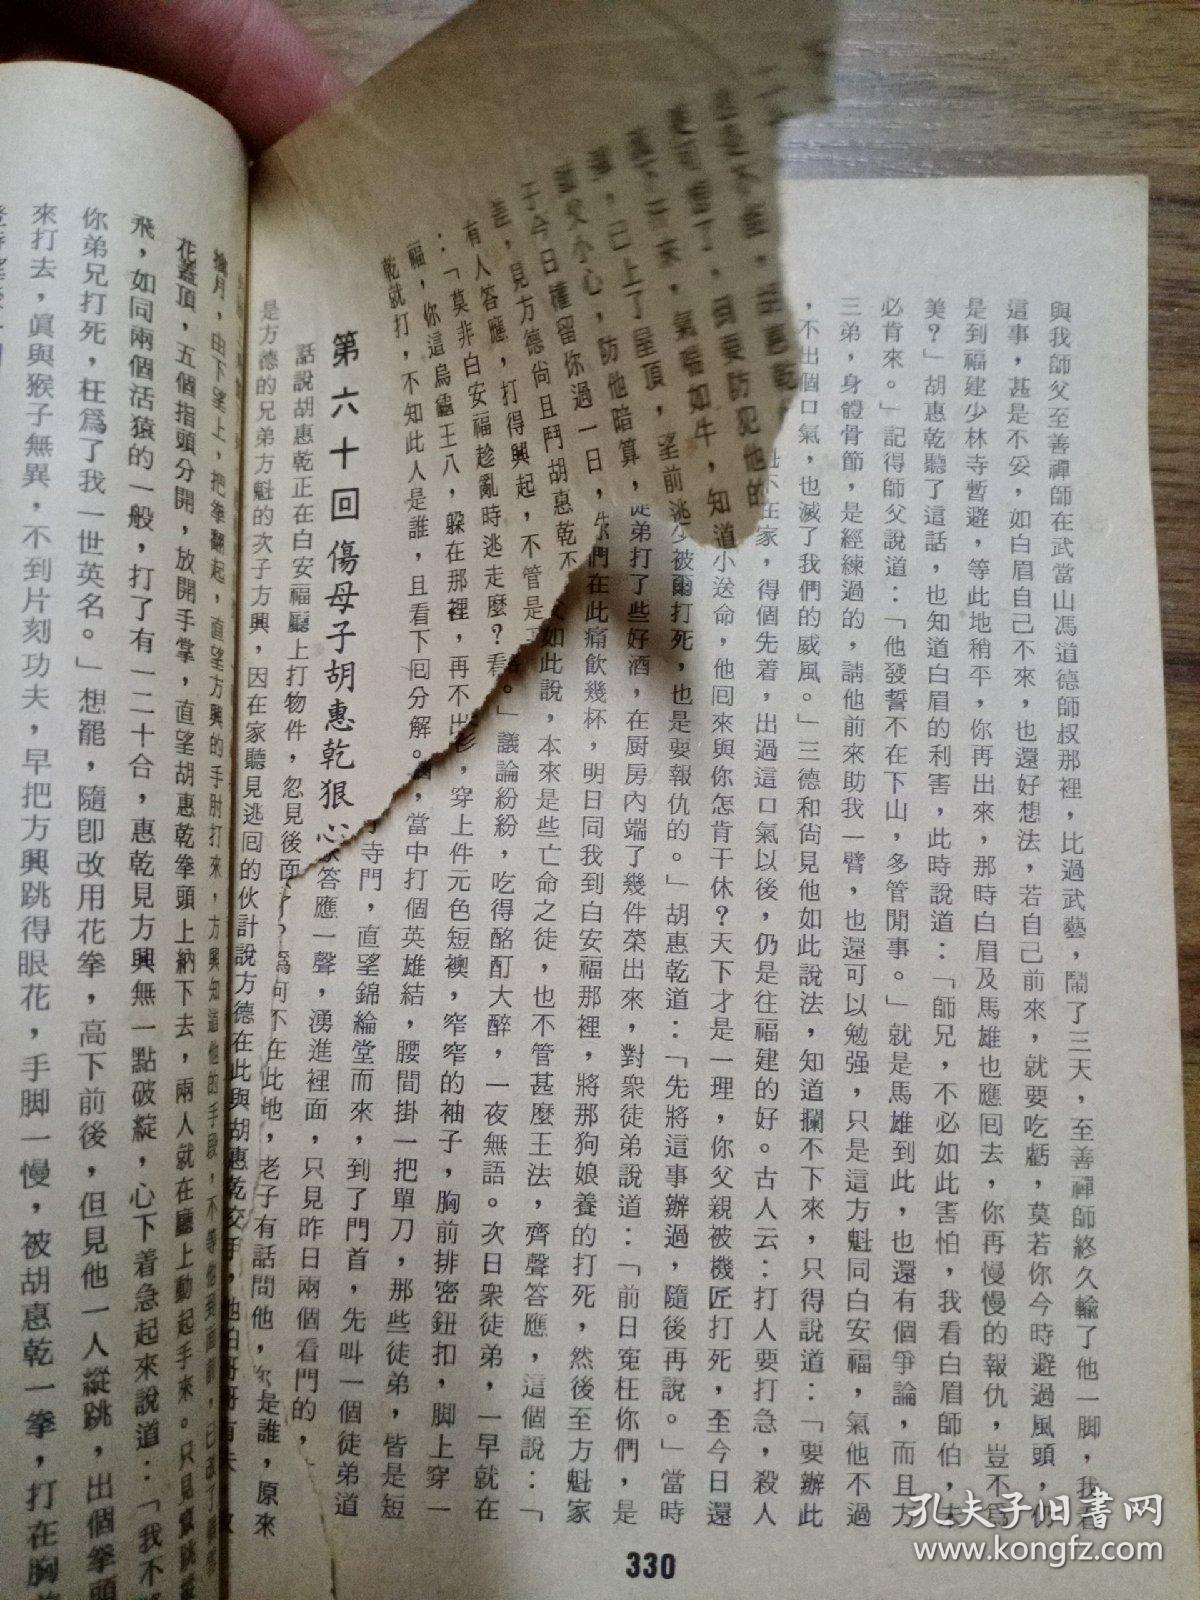 與我師父至善禪師在武當山馮道德師叔那裡，比過武藝，鬧了三天，至善禪師終久輸了他一脚，我看
這事，甚是不妥，如白眉自己不來，也還好想法，若自己前來，就要吃虧，莫若你今時避過風頭，仍
是到福建少林寺暫避，等此地稍平，你再出來，那時白眉及馬雄也應囘去，你再慢慢的報仇，豈不爲
美？」胡惠乾聽了這話，也知道白眉的利害，此時說道：「師兄，不必如此害怕，我看白眉師伯，未
必肯來。」記得師父說道：「他發誓不在下山，多管閒事。」就是馬雄到此，也還有個爭論，而且方
三弟，身體骨節，是經練過的，請他前來助我一臂，也還可以勉强，只是這方魁同白安福，氣他不過
，不出個口氣，也滅了我們的威風。」三德和尙見他如此說法，知道攔不下來，只得說道：「要辦此
不在家，得個先着，出過這口氣以後，仍是往福建的好。古人云：打人要打急，殺人
小送命，他囘來與你怎肯干休？天下才是一理，你父親被機匠打死，至今日還
被爾打死，也是要報仇的。」胡惠乾道：「先將這事辦過，隨後再說。」當時
徒弟打了些好酒，在厨房內端了幾件菜出來，對衆徒弟說道：「前日寃枉你們，是
們在此痛飲幾杯，明日同我到白安福那裡，將那狗娘養的打死，然後至方魁家
如此說，本來是些亡命之徒，也不管甚麼王法，齊聲答應，這個說：「
。」議論紛紛，吃得酩酊大醉，一夜無語。次日衆徒弟，一早就在
，穿上件元色短襖，窄窄的袖子，胸前排密鈕扣，脚上穿一
，當中打個英雄結，腰間掛一把單刀，那些徒弟，皆是短
寺門，直望錦綸堂而來，到了門首，先叫一個徒弟道
答應一聲，湧進裡面，只見昨日兩個看門的，
爲何不在此地，老子有話問他，
是誰，原來
更可進了，須要防犯他的
下
來，氣喘如牛，知道
，已上了屋頂，望前逃
父小心，防他暗算，
于今日權留你過一日，
，見方德尙且鬥胡惠乾不
有人答應，打得興起，不管是
：「莫非白安福趁亂時逃走麼？看
福，你這烏龜王八，躱在那裡，再不出
乾就打，不知此人是誰，且看下囘分解。
第六十回　傷母子胡惠乾狠心
話說胡惠乾正在白安福廳上打物件，忽見後面
是方德的兄弟方魁的次子方興，因在家聽見逃囘的伙計說方德在此與胡惠乾交手，
月，由下望上，把拳翻起，直望方興的手肘打來，方興知道他的手段，不等他到面前，已改了
花蓋頂，五個指頭分開，放開手掌，直望胡惠乾拳頭上納下去，兩人就在廳上動起手來。只見
飛，如同兩個活猿的一般，打了有一二十合，惠乾見方興無一點破綻，心下着急起來說道：「我不
你弟兄打死，枉爲了我一世英名。」想罷，隨卽改用花拳，高下前後，但見他一人縱跳，出個拳頭
來打去，眞與猴子無異，不到片刻功夫，早把方興跳得眼花，手脚一慢，被胡惠乾一拳，打在胸
330
孔夫子旧書网
www.kongfz.com